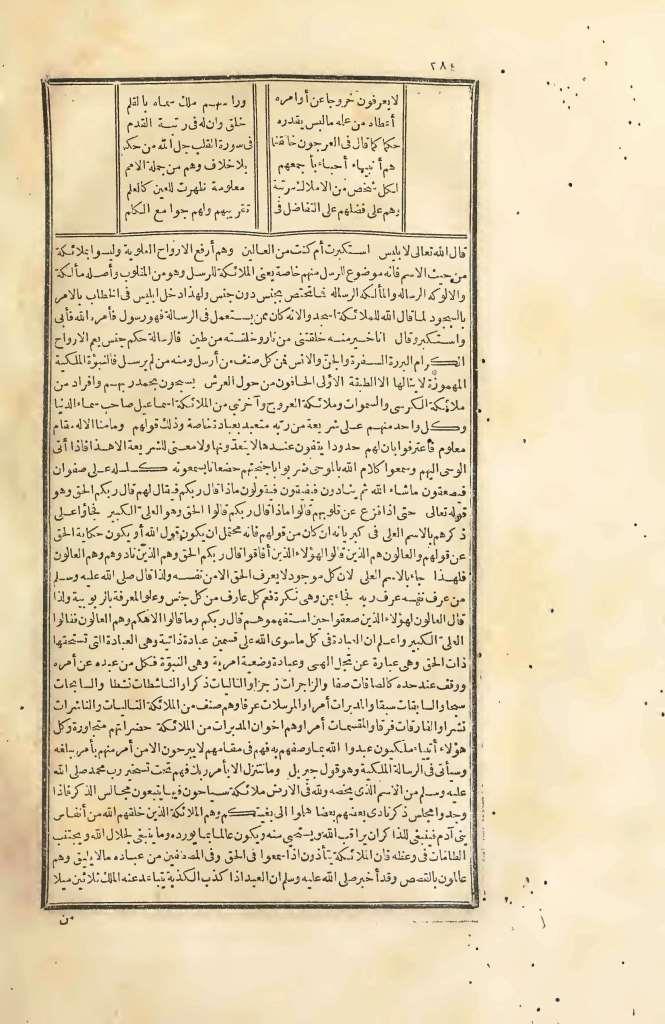 ٢٨٤
لا يعرفون خروجا عن أوامره ورا منهم ملك سماه بالقلم
أعطاه من علمه ما ليس يقدره خلق وان له فى رتبة القدم
حكما كما قال فى العرجون خالقنا فى سورة القلب جل الله من حكم
هم أنبياء أحباء بأجمعهم بلا خلاف وهم من جملة الامم
لكل شخص من الاملاك مرتبة معلومة ظهرت للعين كالعلم
وهم على فضلهم على التفاضل فى تقريبهم ولهم جوامع الكلم
قال الله تعالى لابليس استكبرت أم كنت من العالين وهم أرفع الارواح العلوية وليسوا بملائكة
من حيث الاسم فانه موضوع للرسل منهم خاصة فمعنى الملائكة الرسل وهو من المقلوب وأصله مألكة
والالوكة الرسالة والمألكة الرسالة فما تختص بجنس دون جنس ولهذا دخل ابليس فى الخطاب بالامر
بالسجود لما قال الله للملائكة اسجدوا لانه كان ممن يستعمل فى الرسالة فهو رسول فأمره الله فأبى
واستكبر وقال أنا خير منه خلقتنى من نار وخلقته من طين فالرسالة حكم جنس يعم الارواح
الكرام البررة السفرة والجن والانس فمن كل صنف من أرسل ومنه من لم يرسل فالنبوة الملكية
المهموزة لا ينالها الا الطبقة الاولى الحافون من حول العرش يسبحون بحمد ربهم وأفراد من
ملائكة الكرسى والسموات وملائكة العروج وآخر نبى من الملائكة اسماعيل صاحب سماء الدنيا
وكل واحد منهم على شريعة من ربه متعبد بعبادة خاصة وذلك قولهم وما منا الا له مقام
معلوم فاعترفوا بان لهم حدودا يقفون عندها لا يتعدونها ولا معنى للشريعة الا هذا فاذا أتى
الوحى اليهم وسمعوا كلام الله بالوحى ضربوا باجنحتهم خضعانا يسمعونه كسلسلة على صفوان
فيصعقون ماشاء الله ثم ينادون فيفيقون فيقولون ماذا قال ربكم فيقال لهم قال ربكم الحق وهو
قوله تعالى حتى اذا فزع عن قلوبهم قالوا ماذا قال ربكم قالوا الحق وهو العلى الكبير فجاؤا على
ذكرهم بالاسم العلى فى كبريائه ان كان من قولهم فانه محتمل ان يكون قول الله أو يكون حكاية الحق
عن قولهم والعالون هم الذين قالوا لهؤلاء الذين أفاقوا قال ربكم الحق وهم الذين نادوهم وهم العالون
فلهذا جاء بالاسم العلى لان كل موجود لا يعرف الحق الا من نفسه ولذا قال صلى الله عليه وسلم
من عرف نفسه عرف ربه فجاء بمن وهى نكرة فعم كل عارف من كل جنس وعلق المعرفة بالربوبية ولذا
قال العالون لهؤلاء الذين صعقوا حين استفهموهم قال ربكم وما قالوا الاهكم وهم العالون فقالوا
العلى الكبير واعلم ان العبادة فى كل ما سوى الله على قسمين عبادة ذاتية وهى العبادة التى تستحقها
ذات الحق وهى عبارة عن تجل الهى وعبادة وضعية أمرية وهى النبوة فكل من عبده عن أمره
ووقف عند حده كالصافات صفا والزاجرات زجرا والتاليات ذكرا والناشطات نشطا والسابحات
سبحا والسابقات سبقا والمدبرات أمرا والمرسلات عرفا وهم صنف من الملائكة التاليات والناشرات
نشرا والفارقات فرقا والمقسمات أمرا وهم اخوان المدبرات من الملائكة حضراتهم متجاورة وكل
هؤلاء أنبياء ملكيون عبدوا الله بما وصفهم به فهم فى مقامهم لا يبرحون الا من أمر منهم بأمر يبلغه
وسيأتى فى الرسالة الملكية وهو قول جبريل وما نتنزل الا بأمر ربك فهم تحت تسخير رب محمد صلى الله
عليه وسلم من الاسم الذى يخصه ولله فى الارض ملائكة سياحون فيها يتبعون مجالس الذكر فاذا
وجدوا مجلس ذكر نادى بعضهم بعضا هلموا الى بغيتكم وهم الملائكة الذين خلقهم الله من أنفاس
بنى آدم فينبغى للذاكر ان يراقب الله ويستحيى منه ويكون عالما بما يورده وما ينبغى لجلال الله ويجتنب
الطامات فى وعظه فان الملائكة يتأذون اذا سمعوا فى الحق وفى المصطفين من عباده مالا يليق وهم
عالمون بالقصص وقد أخبر صلى الله عليه وسلم ان العبد اذا كذب الكذبة تباعد عنه الملك ثلاثين ميلا
من